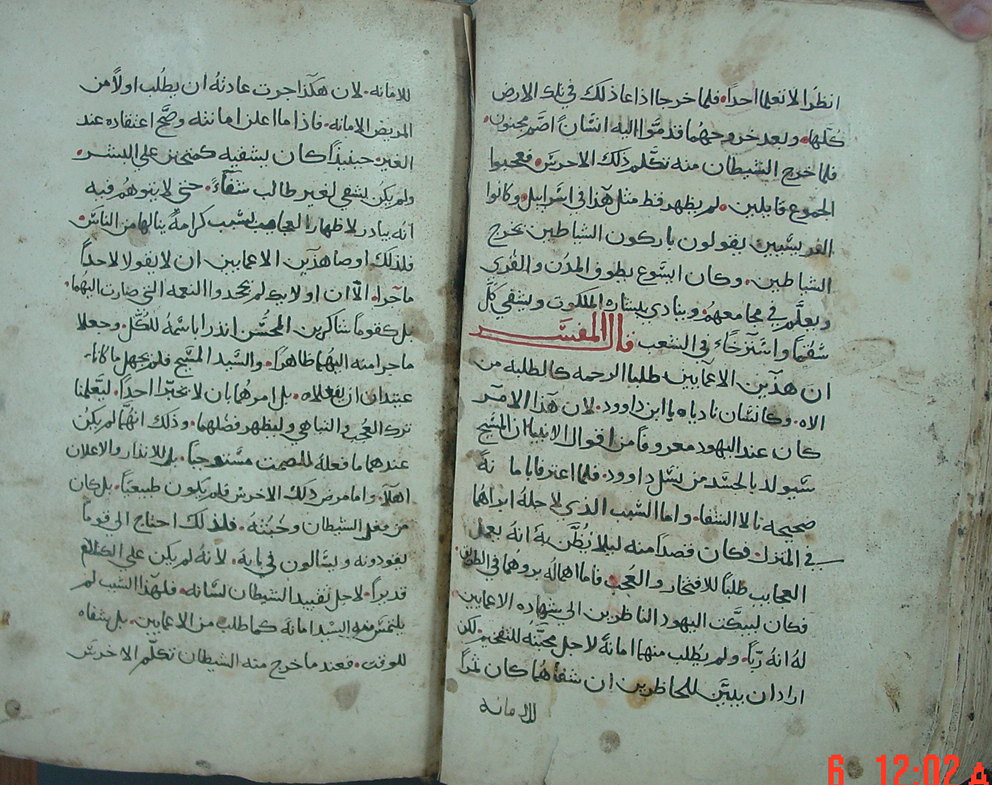 انظرا لا تعلما احدًا. فلما خرجا اذاعا ذلك في تلك الارض
كلها. وبعد خروجهما قدموا اليه انسانًا اصم مجنون.
فلما خرج الشيطان منه تكلم ذلك الاخرس. فعجبوا
الجموع قايلين. لم يظهر قط مثل هذا في اسراييل. وكانوا
الفريسيين يقولون باركون الشياطين يخرج
الشياطين. وكان ايسوع يطوف المدن والقري
ويعلم في مجامعهم. وينادي ببشارة الملكوت ويشفي كل
سقم واسترخاء في الشعب قال المفسر
ان هذين الاعمايين طلبا الرحمه كالطلبه من
الاه. وكانسان نادياه يا ابن داوود. لان هذا الامر
كان عند اليهود معروفًا من اقوال الانبيا ان المسيح
سيولد بالجسد من نسل داوود. فلما اعترفا بامانة
صحيحه نالا الشفا. واما السبب الذي لاجله ابراهما
في المنزل. فكان قصدًا منه ليلا يُظَن به انه يعمل
العجايب طلبًا للافتخار والعُجب فاما اهماله بروهما في الطريق.
فكان ليبكت اليهود الناظرين الي شهاده الاعمايين
له انه ربًا. ولم يطلب منهما امانةً لاجل محبته للتفخيم. لكن
اراد ان يبيّن للحاظرين ان شفاهما كان ثمرًا
للامانه
للامانه. لان هكذا جرت عادته ان يطلب اولاً من
المريض الامانه. فاذا ما اعلن امانته وصح اعتقاده عند
الغير. حينيذًا كان يشفيه كمتحنن علي البشر.
ولم يكن يشفي لغير طالب شفاءً. حتي لا يتوهم فيه
انه يبادر لاظهار العجايب لسبب كرامةٍ ينالها من الناس.
فلذلك اوصا هذين الاعمايين ان لا يقولا لاحدًا
ماجرا. الا ان اولايك لم يجحدوا النعمه التي صارت اليهما.
بل كقوم شاكرين المحسن انذرا باسمه للكل. وجعلا
ماجرا منه اليهما ظاهرًا. والسيد المسيح فلم يجهل ما كانا
عتيدان ان يفعلاه. بل امرهما بان لا يخبّرا احدًا. ليعلمنا
ترك العجب والتباهي وليظهر فضلهما. وذلك انهما لم يكن
عندهما ما فعله للصمت مستوجبًا. بل للانذار والاعلان
اهلاً. واما مرض ذلك الاخرس فلم يكون طبيعيًا. بل كان
من فعل الشيطان وخبثه. فلذلك احتاج الي قومًا
يقودونه ويسالون في بابه. لانه لم يكن علي الكلام
قديرًا. لاجل تقييد الشيطان لسانه. فلهذا السبب لم
يلتمس منه السيد امانه كما طلب من الاعمايين. بل شفاه
للوقت. فعند ما خرج منه الشيطان تكلم الاخرس
6 12:02 A